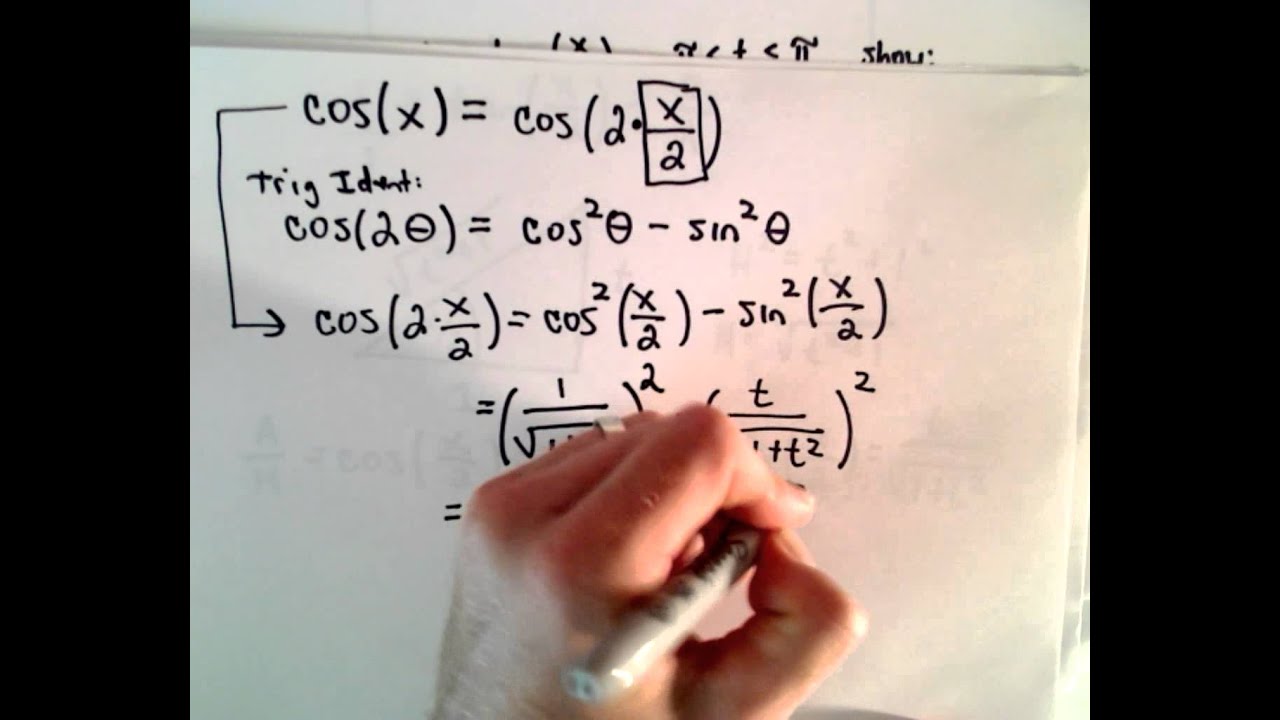 π < t < π show:
cos(x) = cos(2·x/2)
Trig Ident:
cos(2θ) = cos²θ - sin²θ
cos(2·x/2) = cos²(x/2) - sin²(x/2)
= (1/√)² (t/1+t²)²
=